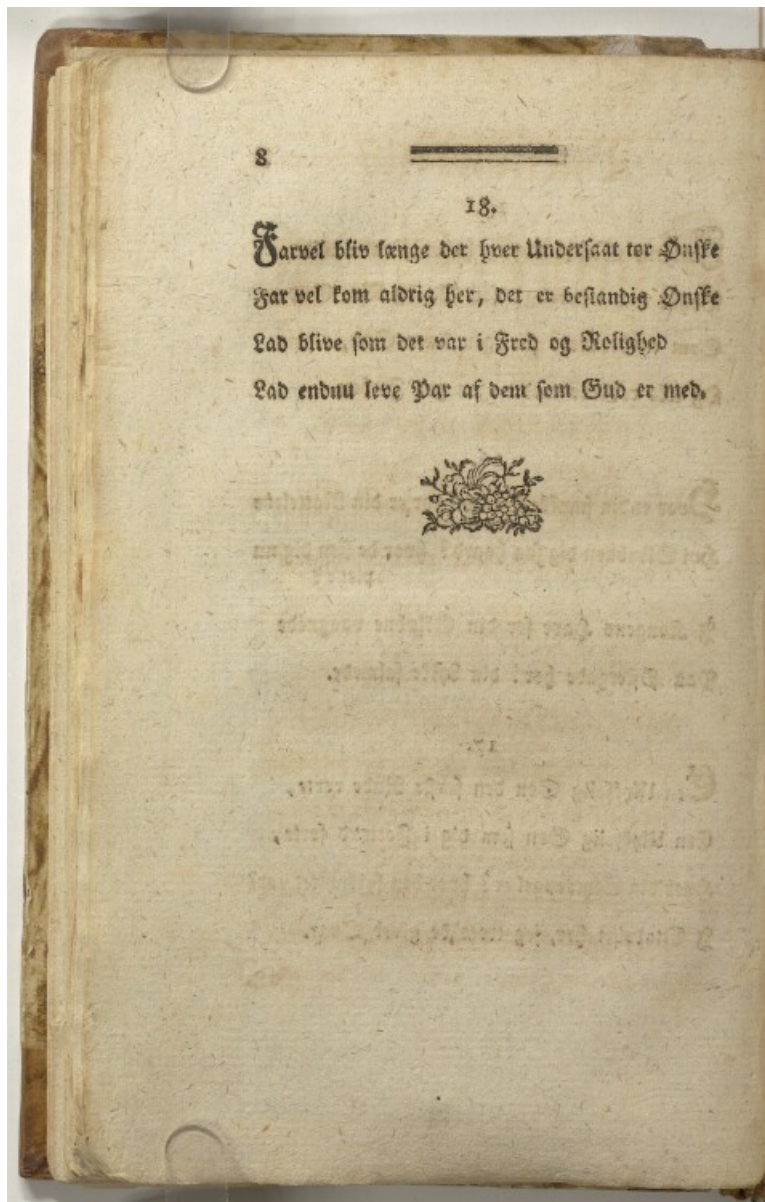 8
18.
Farvel bliv længe der hver Undersaat tør Ønske
Far vel kom aldrig her, det er bestandig Ønske
Lad blive som det var i Fred og Rolighed
Lad endnu leve Par af dem som Gud er med.